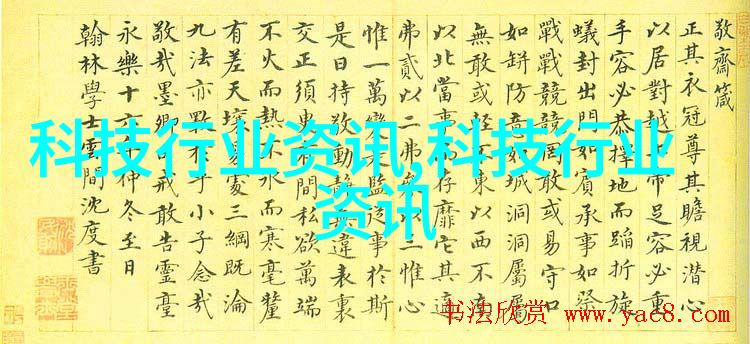 敬齋箴
正其衣冠尊其瞻視潛心
以居對越帝足容必重
手容必恭擇地而蹈折旋
蟻封出門如賓承事如祭
戰戰兢兢罔敢或易守口
如缾防意如城洞洞屬屬
無敢或東以西不南
以北當事存靡它其適
弗貳以二弗以三惟心
惟一萬變監從事於斯
是曰持敬動無違表裏
交正須間私欲萬端
不火而熱而寒毫釐
有差天壤處三綱既淪
九法亦乎小子念哉
敬哉墨卿戒敢告靈臺
永樂十六仲冬至日
翰林學士雲間沈度書
科技行业资讯,科技行业
资讯
书法欣赏
www.yac8.com